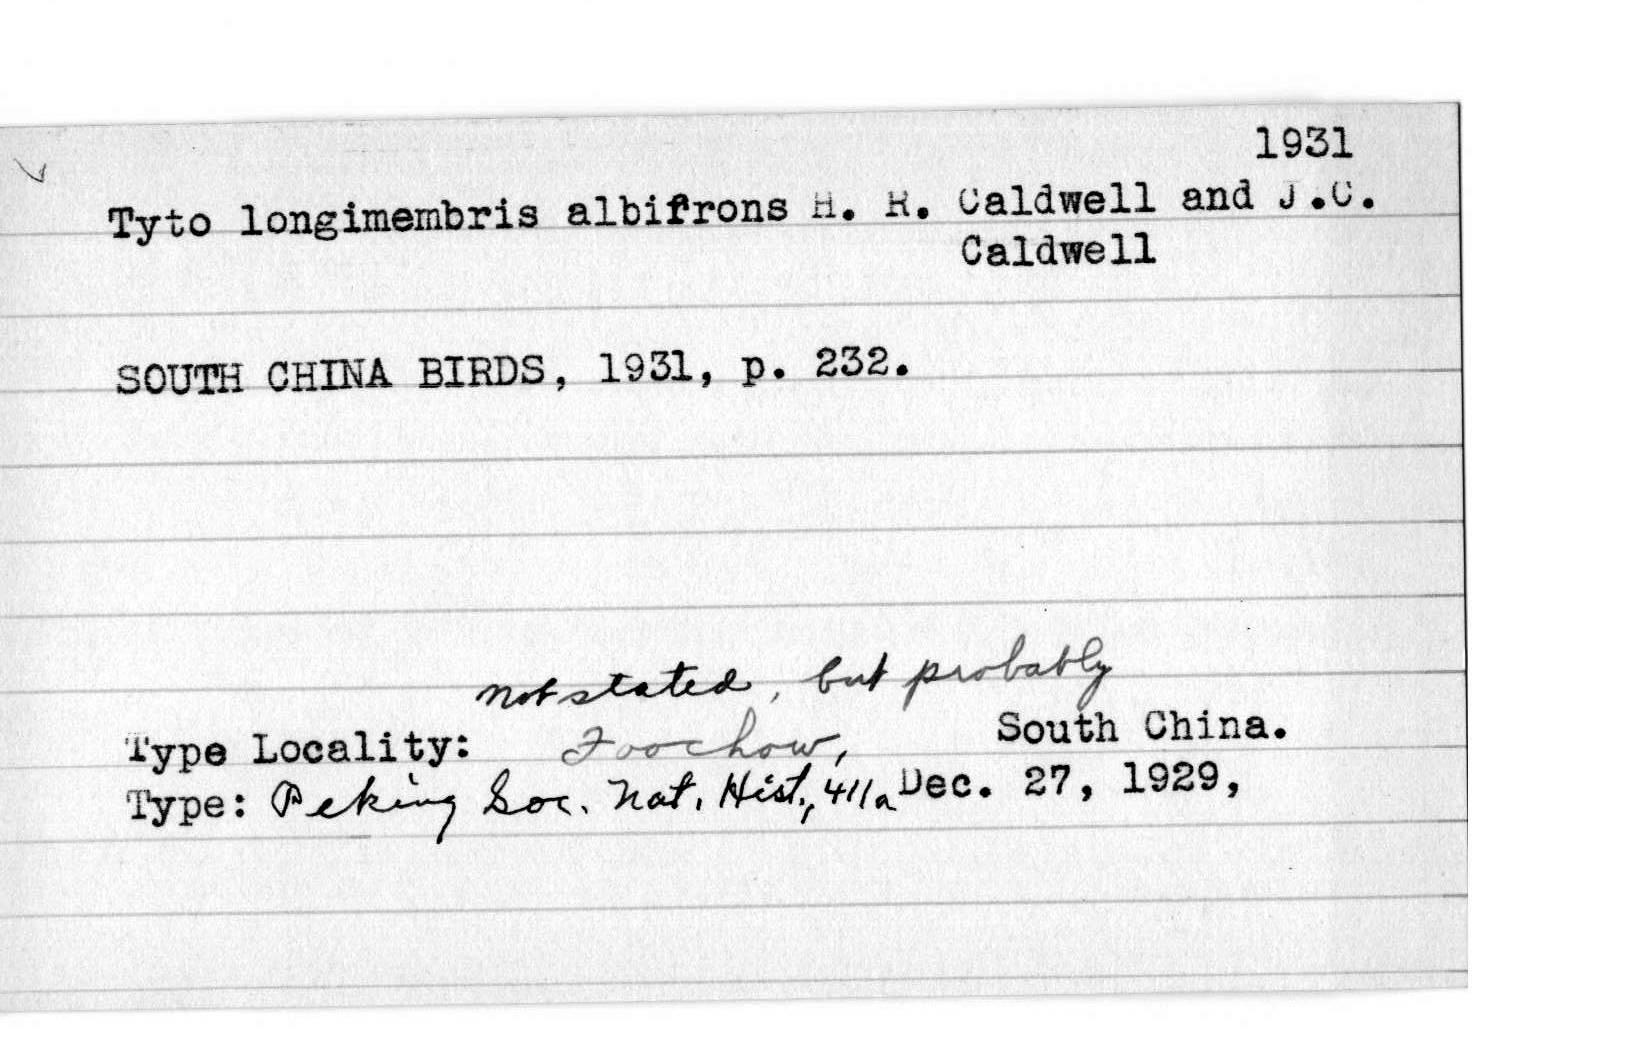 1931
Tyto longimembris albifrons H. R. Caldwell and J.C.
Caldwell
SOUTH CHINA BIRDS, 1931, p. 232.
not stated, but probably
Type Locality: Foochow, South China.
Type: Peking Soc. Nat. Hist., 411a Dec. 27, 1929,